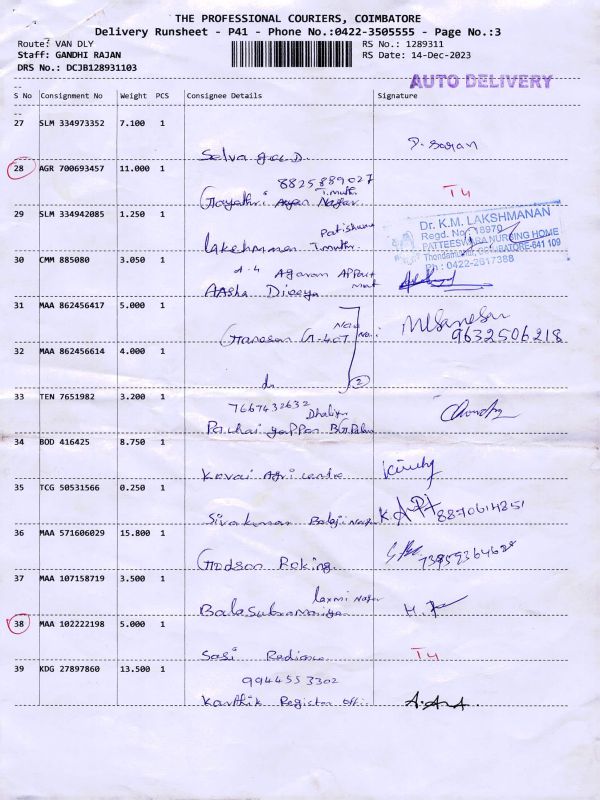 THE PROFESSIONAL COURIERS, COIMBATORE
Delivery Runsheet - P41 - Phone No.:0422-3505555 - Page No.:3
Route: VAN DLY RS No.: 1289311
Staff: GANDHI RAJAN RS Date: 14-Dec-2023
DRS No.: DCJB128931103
AUTO DELIVERY
S No Consignment No Weight PCS Consignee Details Signature
27 SLM 334973352 7.100 1
Selva gold. D. Saran
28 AGR 700693457 11.000 1 8825889027
T.muth
Gayathri Nagar T4
29 SLM 334942085 1.250 1
Dr. K.M. LAKSHMANAN
Regd. No. 18970
PATTEESWARA NURSING HOME
Thondamuthur, COIMBATORE-641 109
Ph : 0422-2617388
Lakshmanan T.muthr
30 CMM 885080 3.050 1
A.4 Agaram Appart
ment
Aasha Divya
31 MAA 862456417 5.000 1
New
Ganesan G-407 No.
9632506218
32 MAA 862456614 4.000 1
do 2
33 TEN 7651982 3.200 1
7667432632
Pachaiyappan
34 BOD 416425 8.750 1
Kovai Agri centre
35 TCG 50531566 0.250 1
Sivakumar Balaji Nagar 8870614251
36 MAA 571606029 15.800 1
Godson
37 MAA 107158719 3.500 1
Laxmi Nagar
Balasubramaniyan
38 MAA 102222198 5.000 1
Sasi Radiance T4
39 KDG 27897860 13.500 1
9944553302
Karthik Register Offi. A.A.A.